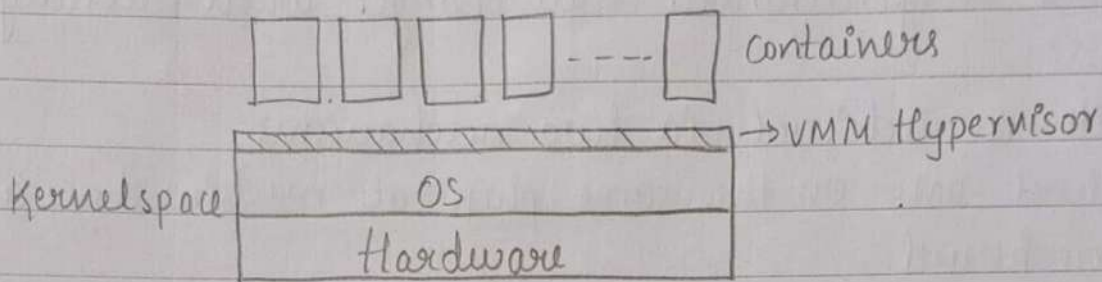 containers
→ VMM Hypervisor
Kernelspace
OS
Hardware